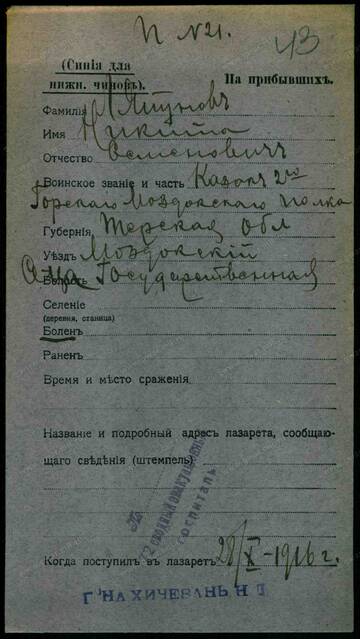 П №21.
43
(Синія для
нижн. чиновъ).
На прибывшихъ.
Фамилія Ляпуновъ
Имя Никита
Отчество Семеновичъ
Воинское званіе и часть Казакъ 2го
Горскаго Моздокскаго полка
Губернія, Терская Обл
Уѣздъ Моздокскій
Государственная
Селеніе
(деревня, станица)
Боленъ
Раненъ
Время и мѣсто сраженія
Названіе и подробный адресъ лазарета, сообщаю-
щаго свѣдѣнія (штемпель)
госпиталь
Когда поступилъ въ лазаретъ 28/X-1916 г.
Г. НАХИЧЕВАНЬ Н Д